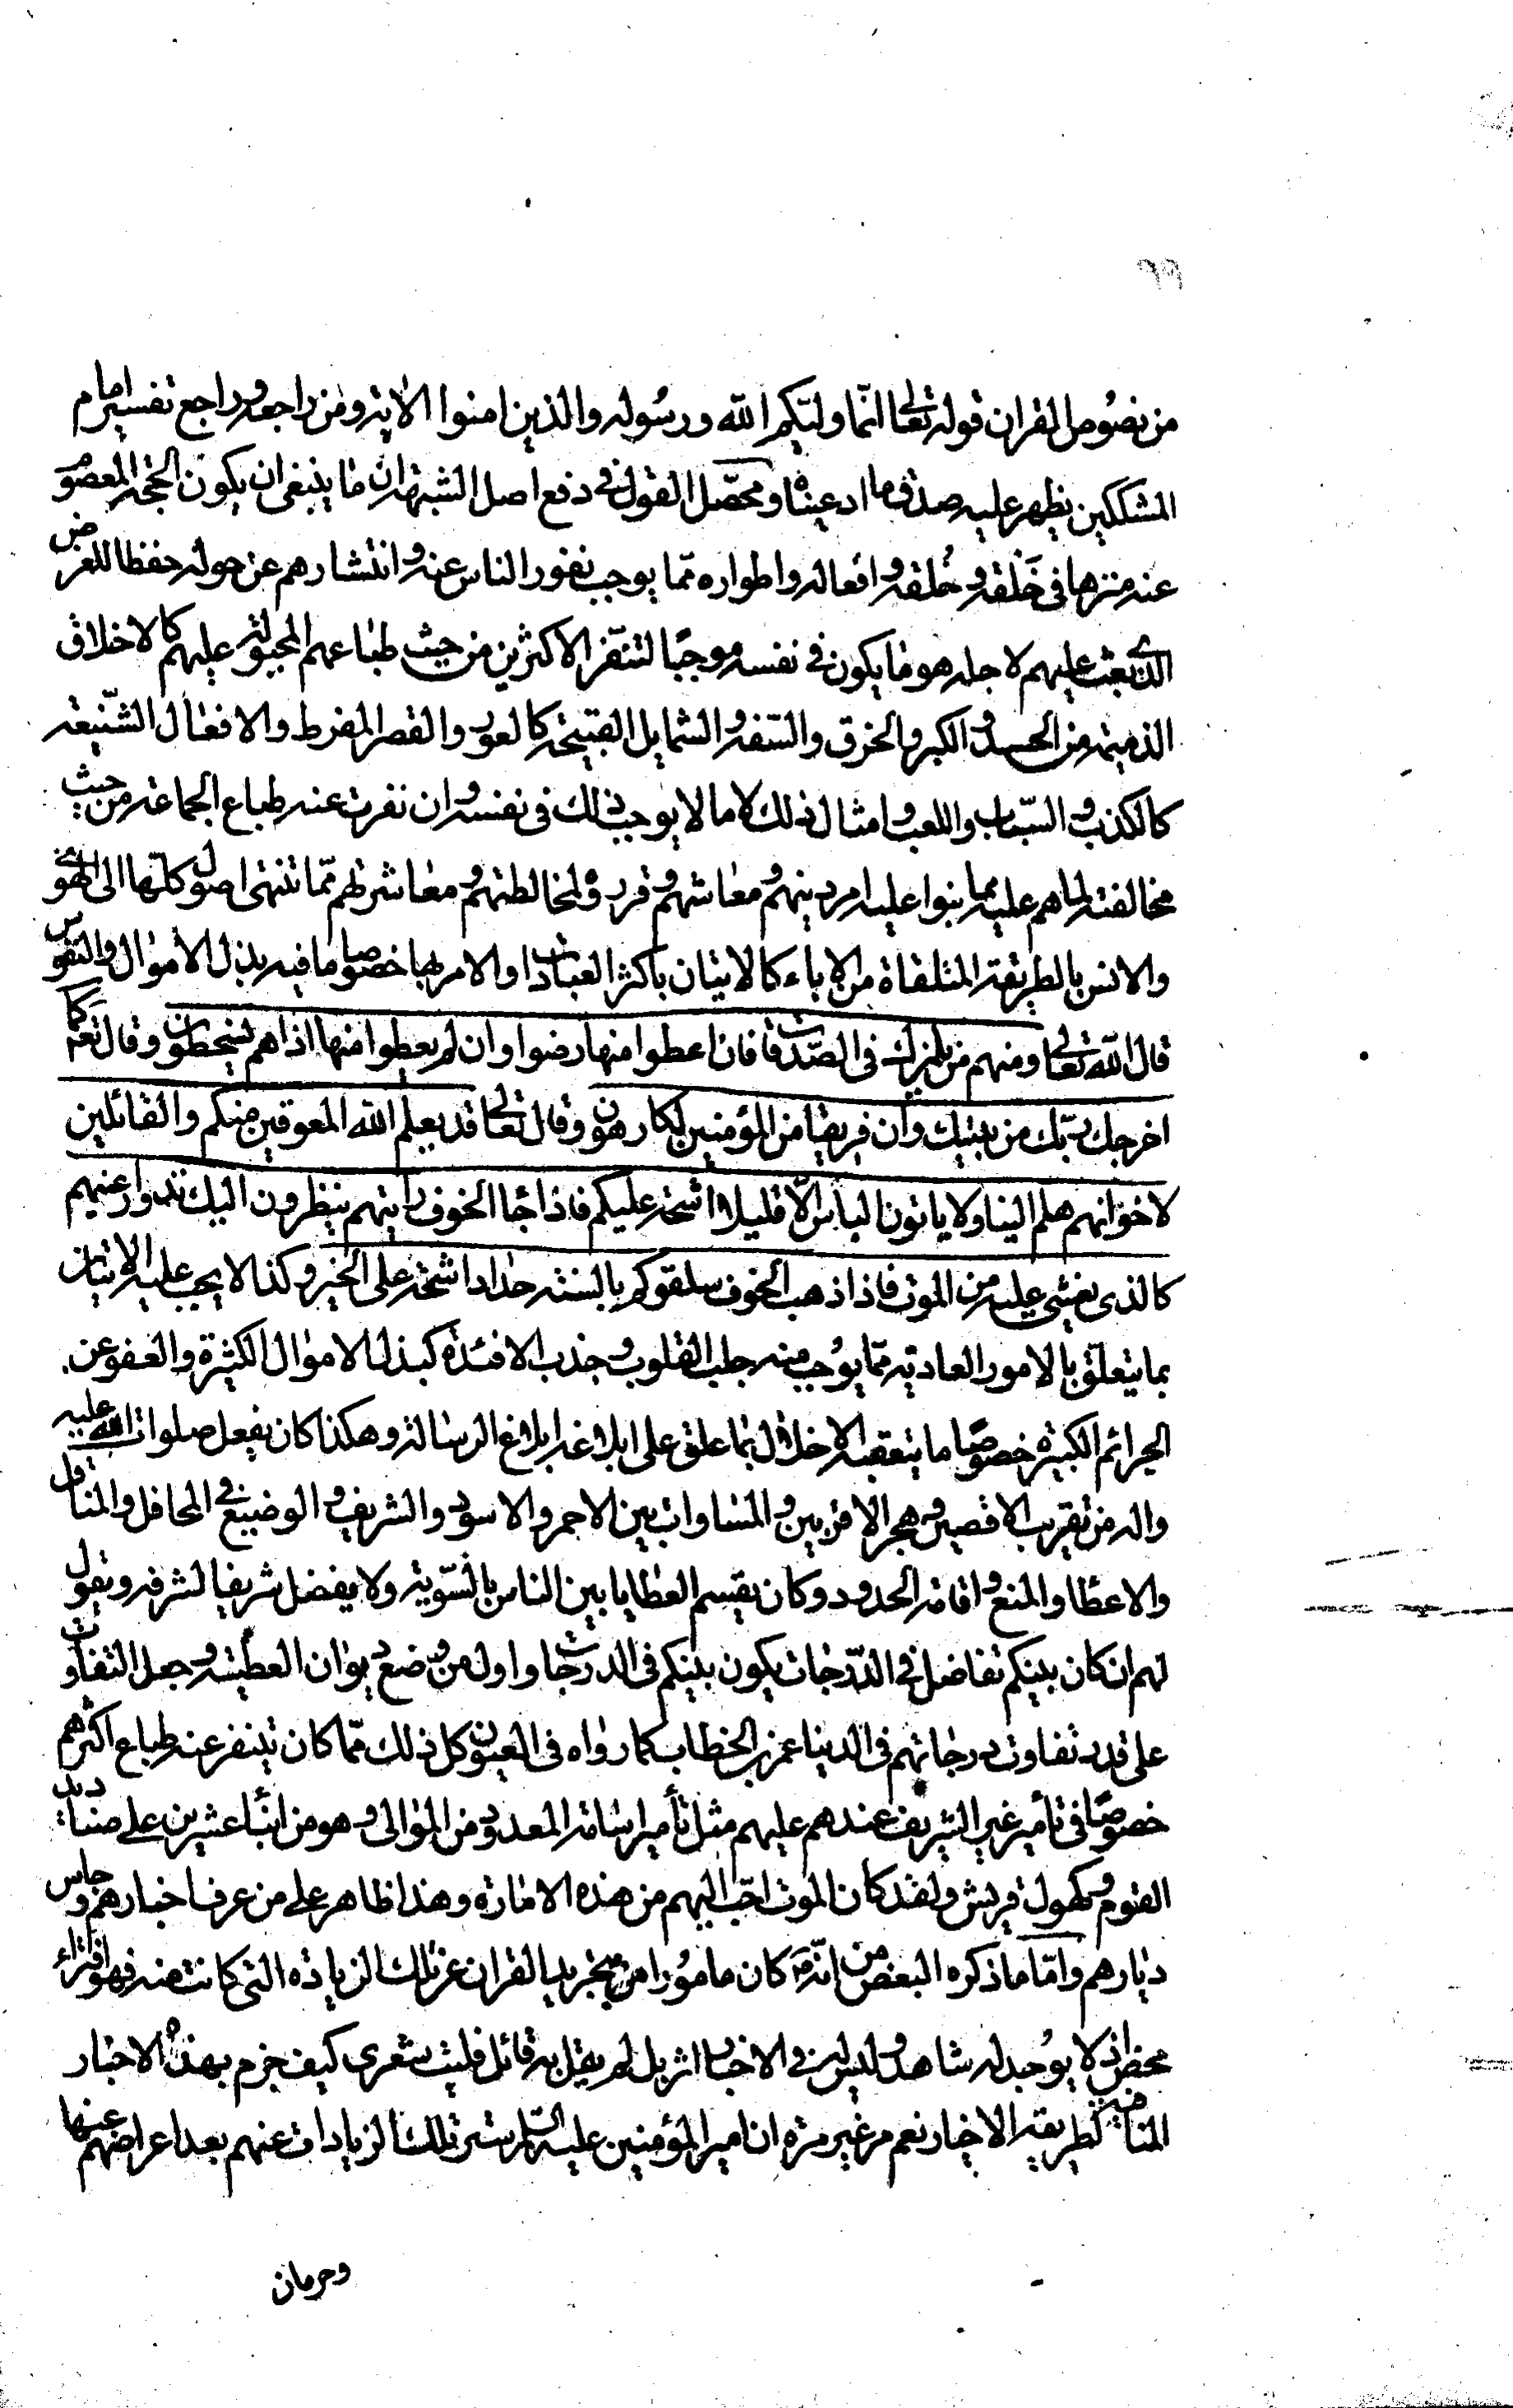 من نصوص القران قوله تعالى انما وليكم الله ورسوله والذين امنوا الاية ومن راجعه وراجع تفسير امام
المشككين يظهر عليه صدق ما ادعيناه ومحصّل القول في دفع اصل الشبهة ان ما ينبغي ان يكون الحجة المعصوم
عنه منزها في خَلقه وخُلقه وافعاله واطواره ممّا يوجب نفور الناس عنه وانتشارهم عن حوله حفظا للغرض
الذي بعث عليهم لاجله هو ما يكون في نفسه موجبًا لتنفّر الاكثرين من حيث طباعهم المجبولة عليها كالاخلاق
الذميمة من الحسد والكبر والخرق والسّفه والشمايل القبيحة كالعور والقصر المفرط والافعال الشّنيعة
كالكذب والسّباب واللعب وامثال ذلك لا ما لا يوجب ذلك في نفسه وان نفرت عنه طباع الجماعة من حيث
مخالفته لما هم عليه مما بنوا عليه امر دينهم ومعاشهم وقرروه لمخالطتهم ومعاشرتهم ممّا تنتهى اصول كلّها الى الهوى
والانس بالطريقة المتلقاة من الاباء كالاتيان باكثر العبادات او الامر بها خصوصا ما فيه بذل الاموال والنفوس
قال الله تعالى ومنهم من يلمزك في الصّدقات فان اعطوا منها رضوا وان لم يعطوا منها اذا هم يسخطون وقال تعالى كما
اخرجك ربّك من بيتك وان فريقا من المؤمنين لكارهون وقال تعالى قد يعلم الله المعوقين منكم والقائلين
لاخوانهم هلم الينا ولا ياتون الباس الّا قليلا اشحّة عليكم فاذا جاء الخوف رايتهم ينظرون اليك تدور اعينهم
كالذي يغشى عليه من الموت فاذا ذهب الخوف سلقوكم بالسنة حداد اشحّة على الخير وكذا لا يجب عليه الاتيان
بما يتعلّق بالامور العادية ممّا يوجب منه جلب القلوب وجذب الافئدة كبذل الاموال الكثيرة والعفو عن
الجرائم الكبيرة خصوصًا ما يتعقبه الاخلال بما علق على ابلاغه ابلاغ الرسالة وهكذا كان يفعل صلوات الله عليه
واله من تقريب الاقصين وهجر الاقربين والمساوات بين الاحمر والاسود والشريف والوضيع في المحافل والمناقل
والاعطا والمنع واقامة الحدود وكان يقسم العطايا بين الناس بالسّوية ولا يفضل شريفا لشرفه ويقول
لهم ان كان بينكم تفاضل في الدّرجات يكون بينكم في الدرجات واول من وضع ديوان العطية وجعل التفاوت
على قدر تفاوت درجاتهم في الدنيا عمر بن الخطاب كما رواه في العيون كل ذلك ممّا كان يتنفر عنه طباع اكثرهم
خصوصًا في تأمير غير الشريف عندهم عليهم مثل تأمير اسامة المعدود من الموالى وهو من ابناء عشرين على صناديد
القوم وكهول قريش ولقد كان الموت احبّ اليهم من هذه الامارة وهذا ظاهر على من عرف اخبارهم وجاس
ديارهم وامّا ما ذكره البعض من انّه كان مامورا من تجريد القران عن تلك الزيادة التى كانت فيه فهو افتراء
محض اذ لا يوجد له شاهد وليس له في الاخبار اثر بل لم يقل به قائل فليت شعرى كيف جزم بهذه الاخبار
لطريقة الاخبار نعم مر غير مرة ان امير المؤمنين عليه السّلم ستر تلك الزيادات عنهم بعد اعراضهم عنها
وحرمان